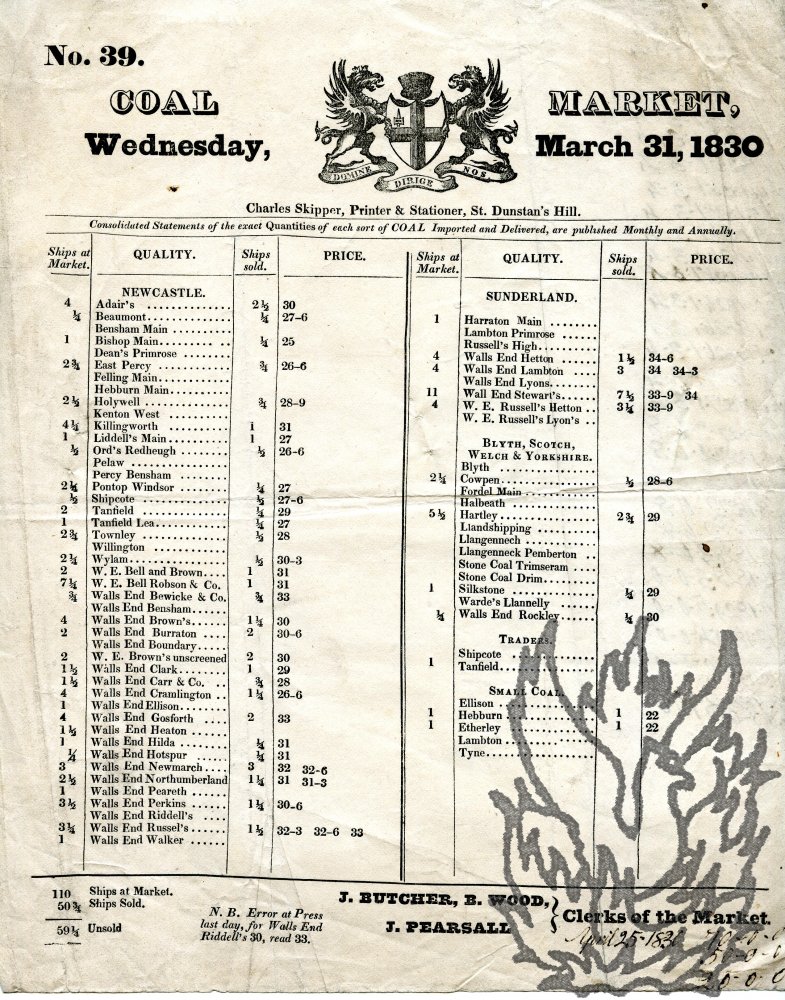 No. 39.
COAL MARKET,
Wednesday, March 31, 1830
DOMINE DIRIGE NOS
Charles Skipper, Printer & Stationer, St. Dunstan's Hill.
Consolidated Statements of the exact Quantities of each sort of COAL Imported and Delivered, are published Monthly and Annually.
Ships at Market. QUALITY. Ships sold. PRICE.
NEWCASTLE.
4 Adair's .............. 2½ 30
¼ Beaumont.............. ¼ 27-6
Bensham Main ..........
1 Bishop Main........... ¼ 25
Dean's Primrose ........
2¾ East Percy ............ ¾ 26-6
Felling Main............
Hebburn Main..........
2½ Holywell .............. ¾ 28-9
Kenton West ..........
4¼ Killingworth .......... 1 31
1 Liddell's Main.......... 1 27
½ Ord's Redheugh ........ ½ 26-6
Pelaw ................
Percy Bensham ........
2¼ Pontop Windsor ........ ¼ 27
½ Shipcote .............. ½ 27-6
2 Tanfield .............. ¼ 29
1 Tanfield Lea............ ¼ 27
2¾ Townley .............. ½ 28
Willington ............
2¼ Wylam................ ½ 30-3
2 W. E. Bell and Brown.... 1 31
7¼ W. E. Bell Robson & Co. 1 31
¾ Walls End Bewicke & Co. ¾ 33
Walls End Bensham......
4 Walls End Brown's...... 1¼ 30
2 Walls End Burraton .... 2 30-6
Walls End Boundary....
2 W. E. Brown's unscreened 2 30
1½ Walls End Clark........ 1 29
1½ Walls End Carr & Co. .. ¾ 28
4 Walls End Cramlington .. 1¼ 26-6
1 Walls End Ellison......
4 Walls End Gosforth .... 2 33
1½ Walls End Heaton ......
1 Walls End Hilda ........ ¼ 31
¼ Walls End Hotspur .... ¼ 31
3 Walls End Newmarch.... 3 32 32-6
2½ Walls End Northumberland 1¼ 31 31-3
1 Walls End Peareth ......
3½ Walls End Perkins ...... 1¼ 30-6
Walls End Riddell's ....
3¼ Walls End Russel's...... 1½ 32-3 32-6 33
1 Walls End Walker ......
Ships at Market. QUALITY. Ships sold. PRICE.
SUNDERLAND.
1 Harraton Main ........
Lambton Primrose ......
Russell's High..........
4 Walls End Hetton ...... 1½ 34-6
4 Walls End Lambton .... 3 34 34-3
Walls End Lyons........
11 Wall End Stewart's...... 7½ 33-9 34
4 W. E. Russell's Hetton .. 3¼ 33-9
W. E. Russell's Lyon's ..
BLYTH, SCOTCH,
WELCH & YORKSHIRE.
Blyth ................
2¼ Cowpen................ ½ 28-6
Fordel Main ..........
Halbeath ..............
5½ Hartley ................ 2¾ 29
Llandshipping ..........
Llangennech ..........
Llangenneck Pemberton ..
Stone Coal Trimseram ....
Stone Coal Drim........
1 Silkstone .............. ¼ 29
Warde's Llannelly ......
¼ Walls End Rockley...... ¼ 30
TRADERS.
Shipcote ..............
1 Tanfield................
SMALL COAL.
Ellison ................
1 Hebburn .............. 1 22
1 Etherley .............. 1 22
Lambton ..............
Tyne..................
110 Ships at Market.
50¾ Ships Sold.
59¼ Unsold
N. B. Error at Press
last day, for Walls End
Riddell's 30, read 33.
J. BUTCHER, B. WOOD,
J. PEARSALL
Clerks of the Market.
April 25-1830